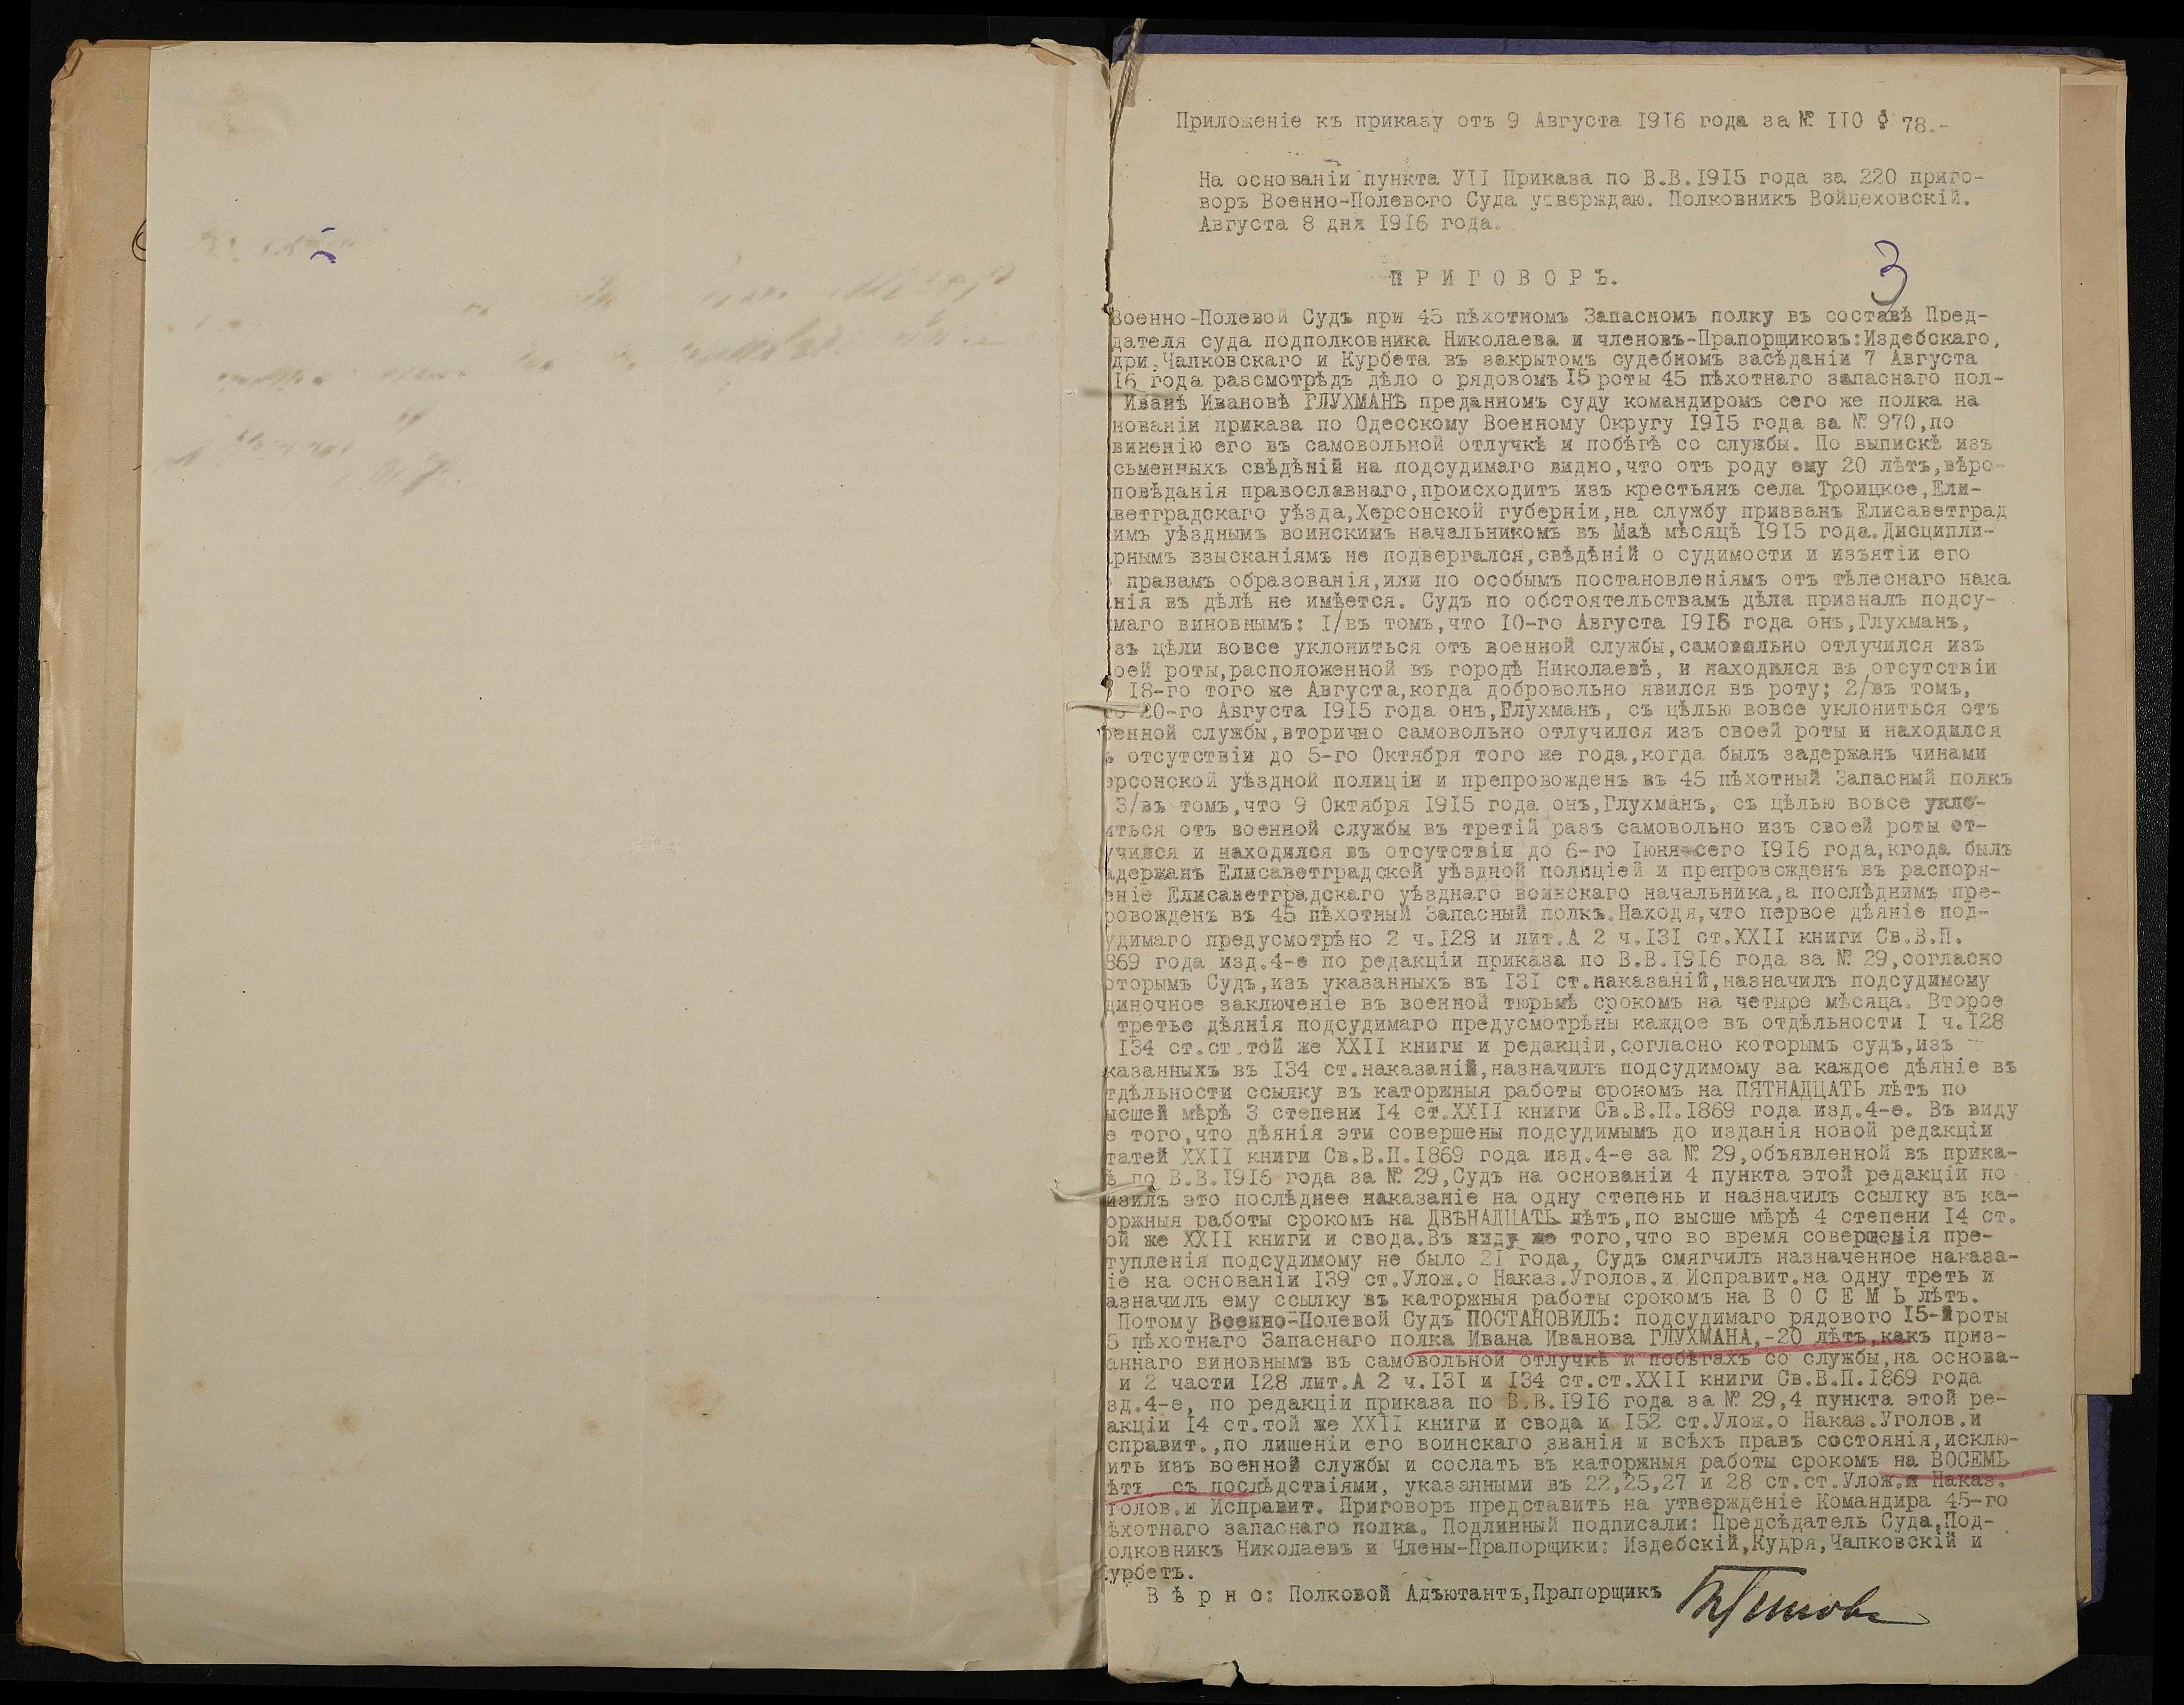 Приложеніе къ приказу отъ 9 Августа 1916 года за № 110 § 78.-
На основаніи пункта УІІ Приказа по В.В.1915 года за 220 приго-
воръ Военно-Полевого Суда утверждаю. Полковникъ Войцеховскій.
Августа 8 дня 1916 года.
3
П Р И Г О В О Р Ъ.
Военно-Полевой Судъ при 45 пѣхотномъ Запасномъ полку въ составѣ Пред-
дателя суда подполковника Николаева и членовъ-Прапорщиковъ:Издебскаго,
дри,Чапковскаго и Курбета въ закрытомъ судебномъ засѣданіи 7 Августа
16 года разсмотрѣдъ дѣло о рядовомъ 15 роты 45 пѣхотнаго запаснаго пол-
Иванѣ Ивановѣ ГЛУХМАНѢ преданномъ суду командиромъ сего же полка на
нованіи приказа по Одесскому Военному Округу 1915 года за № 970,по
виненію его въ самовольной отлучкѣ и побѣгѣ со службы. По выпискѣ изъ
сьменныхъ свѣдѣній на подсудимаго видно,что отъ роду ему 20 лѣтъ,вѣро-
повѣданія православнаго,происходитъ изъ крестьянъ села Троицкое,Ели-
ветградскаго уѣзда,Херсонской губерніи,на службу призванъ Елисаветград
имъ уѣзднымъ воинскимъ начальникомъ въ Маѣ мѣсяцѣ 1915 года.Дисципли-
рнымъ взысканіямъ не подвергался,свѣдѣній о судимости и изъятіи его
правамъ образованія,или по особымъ постановленіямъ отъ тѣлеснаго нака
нія въ дѣлѣ не имѣется. Судъ по обстоятельствамъ дѣла призналъ подсу-
маго виновнымъ: 1/въ томъ,что 10-го Августа 1915 года онъ,Глухманъ,
зъ цѣли вовсе уклониться отъ военной службы,самовольно отлучился изъ
оей роты,расположенной въ городѣ Николаевѣ, и находился въ отсутствіи
18-го того же Августа,когда добровольно явился въ роту; 2/въ томъ,
20-го Августа 1915 года онъ,Глухманъ, съ цѣлью вовсе уклониться отъ
енной службы,вторично самовольно отлучился изъ своей роты и находился
отсутствіи до 5-го Октября того же года,когда былъ задержанъ чинами
ерсонской уѣздной полиціи и препровожденъ въ 45 пѣхотный Запасный полкъ
3/въ томъ,что 9 Октября 1915 года онъ,Глухманъ, съ цѣлью вовсе укло-
иться отъ военной службы въ третій разъ самовольно изъ своей роты от-
учился и находился въ отсутствіи до 6-го Іюня сего 1916 года,кгода былъ
адержанъ Елисаветградской уѣздной полиціей и препровожденъ въ распоря-
еніе Елисаветградскаго уѣзднаго воинскаго начальника,а послѣднимъ пре-
ровожденъ въ 45 пѣхотный Запасный полкъ.Находя,что первое дѣяніе под-
удимаго предусмотрѣно 2 ч.128 и лит.А 2 ч.131 ст.XXII книги Св.В.П.
869 года изд.4-е по редакціи приказа по В.В.1916 года за № 29,согласно
оторымъ Судъ,изъ указанныхъ въ 131 ст.наказаній,назначилъ подсудимому
диночное заключеніе въ военной тюрьмѣ срокомъ на четыре мѣсяца. Второе
третье дѣянія подсудимаго предусмотрѣны каждое въ отдѣльности 1 ч.128
134 ст.ст.той же XXII книги и редакціи,согласно которымъ судъ,изъ
казанныхъ въ 134 ст.наказаній,назначилъ подсудимому за каждое дѣяніе въ
тдѣльности ссылку въ каторжныя работы срокомъ на ПЯТНАДЦАТЬ лѣтъ по
ысшей мѣрѣ 3 степени 14 ст.XXII книги Св.В.П.1869 года изд.4-е. Въ виду
е того,что дѣянія эти совершены подсудимымъ до изданія новой редакціи
татей XXII книги Св.В.П.1869 года изд.4-е за № 29,объявленной въ прика-
ѣ по В.В.1916 года за № 29,Судъ на основаніи 4 пункта этой редакціи по
изилъ это послѣднее наказаніе на одну степень и назначилъ ссылку въ ка-
оржныя работы срокомъ на ДВѢНАДЦАТЬ лѣтъ,по высше мѣрѣ 4 степени 14 ст.
ой же XXII книги и свода.Въ виду же того,что во время совершенія пре-
тупленія подсудимому не было 21 года, Судъ смягчилъ назначенное наказа-
іе на основаніи 139 ст.Улож.о Наказ.Уголов.и Исправит.на одну треть и
азначилъ ему ссылку въ каторжныя работы срокомъ на В О С Е М Ь лѣтъ.
Потому Военно-Полевой Судъ ПОСТАНОВИЛЪ: подсудимаго рядового 15-й роты
5 пѣхотнаго Запаснаго полка Ивана Иванова ГЛУХМАНА,-20 лѣтъ,какъ приз-
аннаго виновнымъ въ самовольной отлучкѣ и побѣгахъ со службы,на основа-
и 2 части 128 лит.А 2 ч.131 и 134 ст.ст.XXII книги Св.В.П.1869 года
зд.4-е, по редакціи приказа по В.В.1916 года за № 29,4 пункта этой ре-
акціи 14 ст.той же XXII книги и свода и 152 ст.Улож.о Наказ.Уголов.и
справит.,по лишеніи его воинскаго званія и всѣхъ правъ состоянія,исклю-
ить изъ военной службы и сослать въ каторжныя работы срокомъ на ВОСЕМЬ
ѣтъ съ послѣдствіями, указанными въ 22,25,27 и 28 ст.ст.Улож.о Наказ.
голов.и Исправит. Приговоръ представить на утвержденіе Командира 45-го
ѣхотнаго запаснаго полка. Подлинный подписали: Предсѣдатель Суда,Под-
олковникъ Николаевъ и Члены-Прапорщики: Издебскій,Кудря,Чапковскій и
урбетъ.
В ѣ р н о: Полковой Адъютантъ,Прапорщикъ